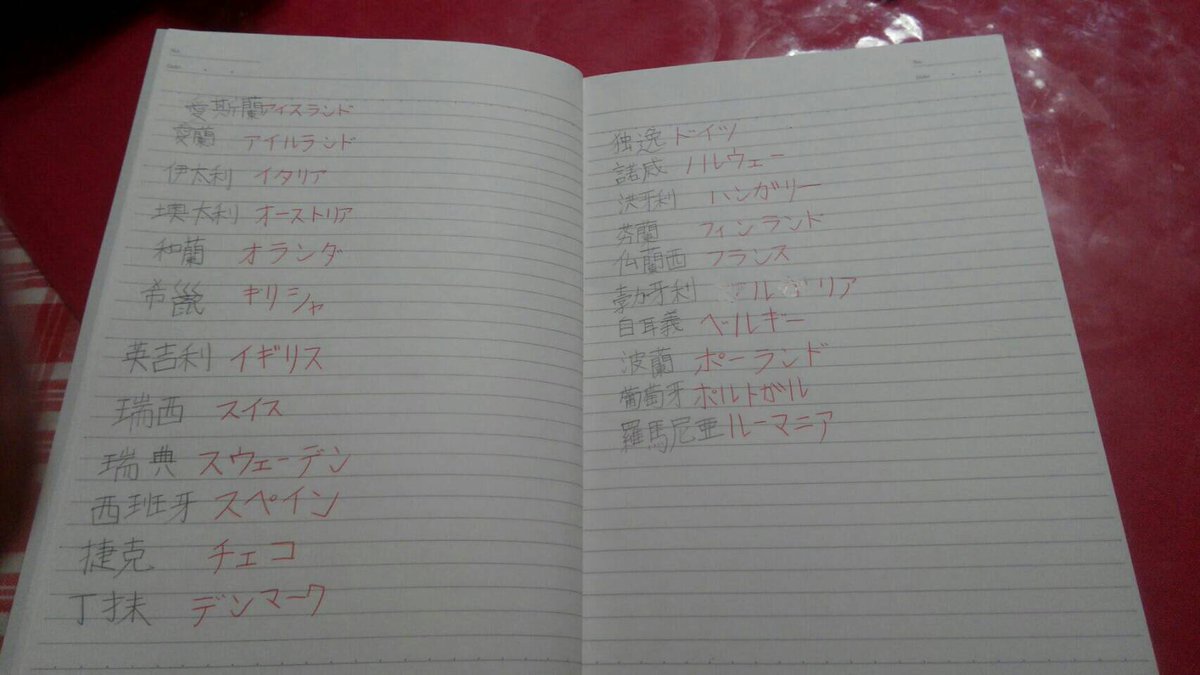 愛斯蘭 アイスランド
愛蘭 アイルランド
伊太利 イタリア
墺太利 オーストリア
和蘭 オランダ
希臘 ギリシャ
英吉利 イギリス
瑞西 スイス
瑞典 スウェーデン
西班牙 スペイン
捷克 チェコ
丁抹 デンマーク
独逸 ドイツ
諾威 ノルウェー
洪牙利 ハンガリー
芬蘭 フィンランド
仏蘭西 フランス
勃牙利 ブルガリア
白耳義 ベルギー
波蘭 ポーランド
葡萄牙 ポルトガル
羅馬尼亜 ルーマニア